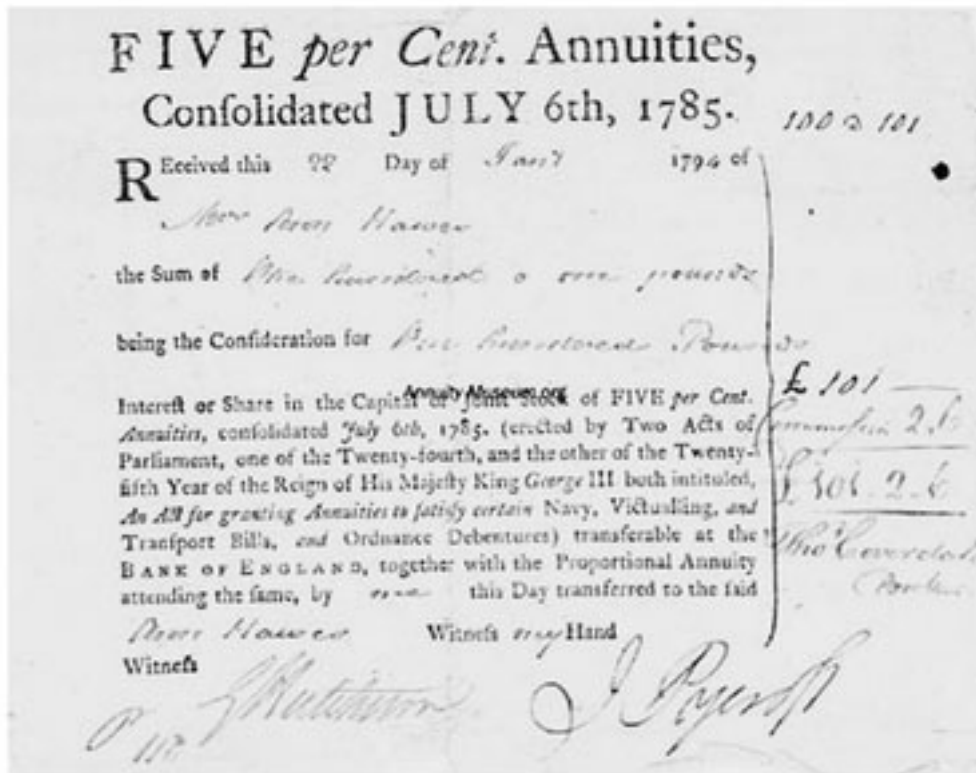 FIVE per Cent. Annuities,
Conſolidated JULY 6th, 1785.
100 a 101
REceived this 22 Day of Jany 1794 of
Mrs Ann Hawes
the Sum of One hundred & one pounds
being the Conſideration for One hundred Pounds
AnnuityMuseum.org
£ 101
Intereſt or Share in the Capital or Joint Stock of FIVE per Cent.
Annuities, conſolidated July 6th, 1785. (erected by Two Acts of
Commiſsion 2.6
Parliament, one of the Twenty-fourth, and the other of the Twenty-
fifth Year of the Reign of His Majeſty King George III both intituled,
£ 101.2.6
An Act for granting Annuities to ſatisfy certain Navy, Victualling, and
Tranſport Bills, and Ordnance Debentures) transferable at the
Thos Coverdale
BANK OF ENGLAND, together with the Proportional Annuity
attending the ſame, by me this Day transferred to the ſaid
Ann Hawes Witneſs my Hand
Witneſs